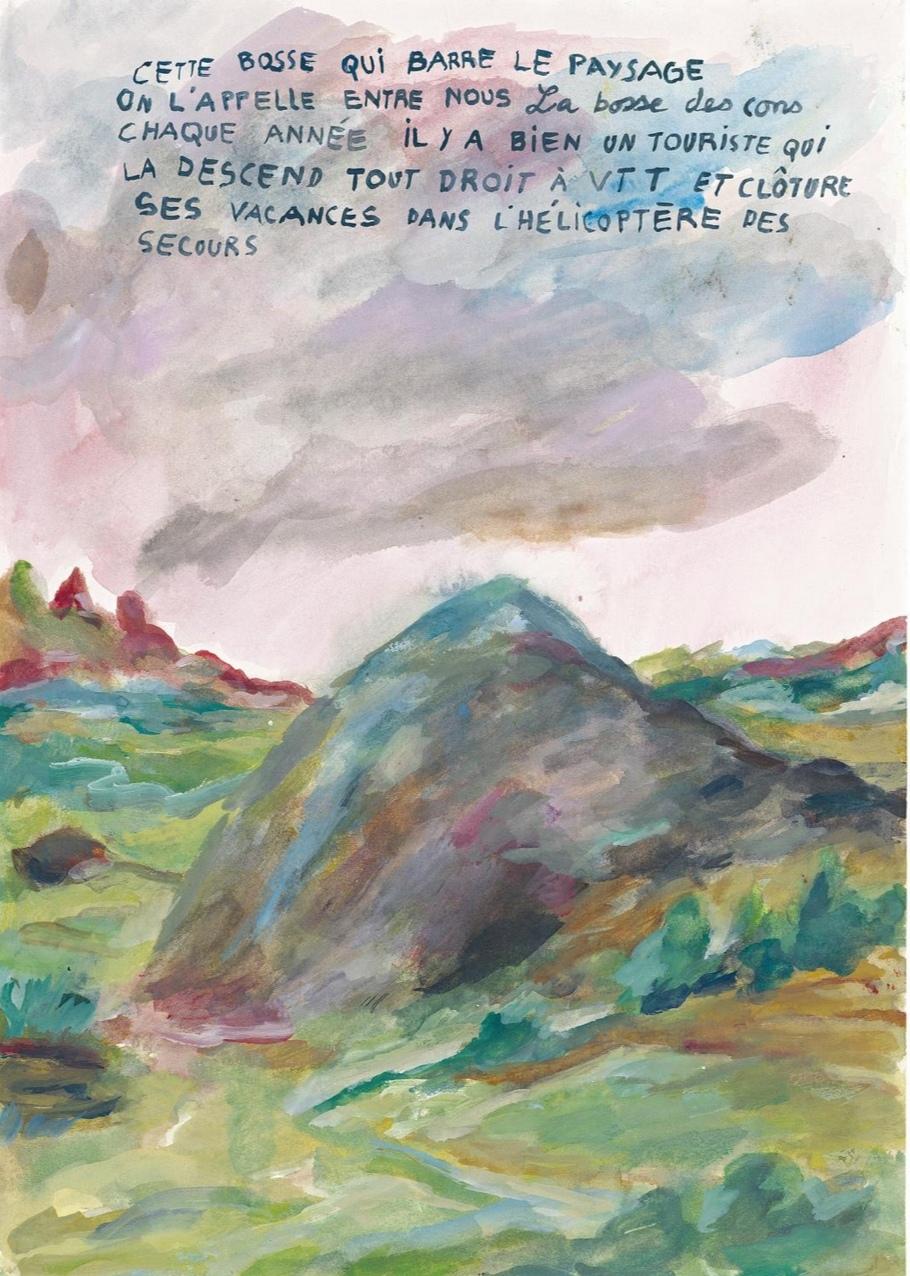 CETTE BOSSE QUi BARRE LE PAYSAGE
ON L'APPELLE ENTRE NOUS La bosse des cons
CHAQUE ANNÉE iL Y A BiEN UN TOURiSTE QUi
LA DESCEND TOUT DROiT À VTT ET CLÔTURE
SES VACANCES DANS L'HÉLiCOPTÈRE DES
SECOURS